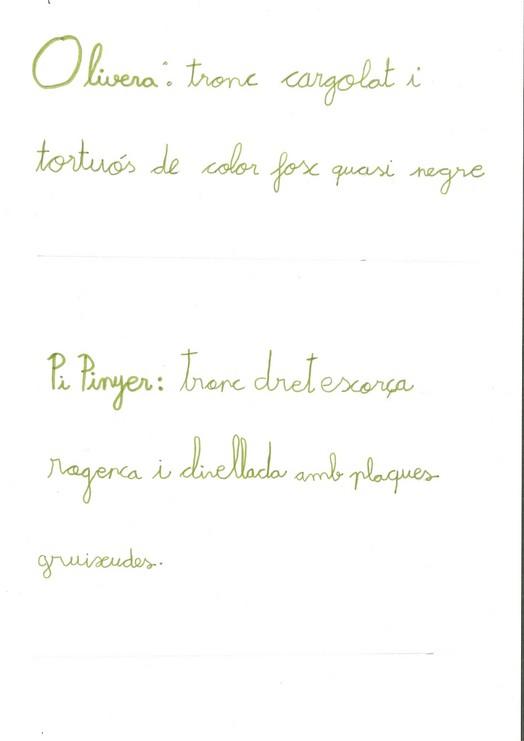 Olivera: tronc cargolat i
tortuós de color fosc quasi negre
Pi Pinyer: tronc dret escorça
rogenca i clivellada amb plaques
gruixudes.